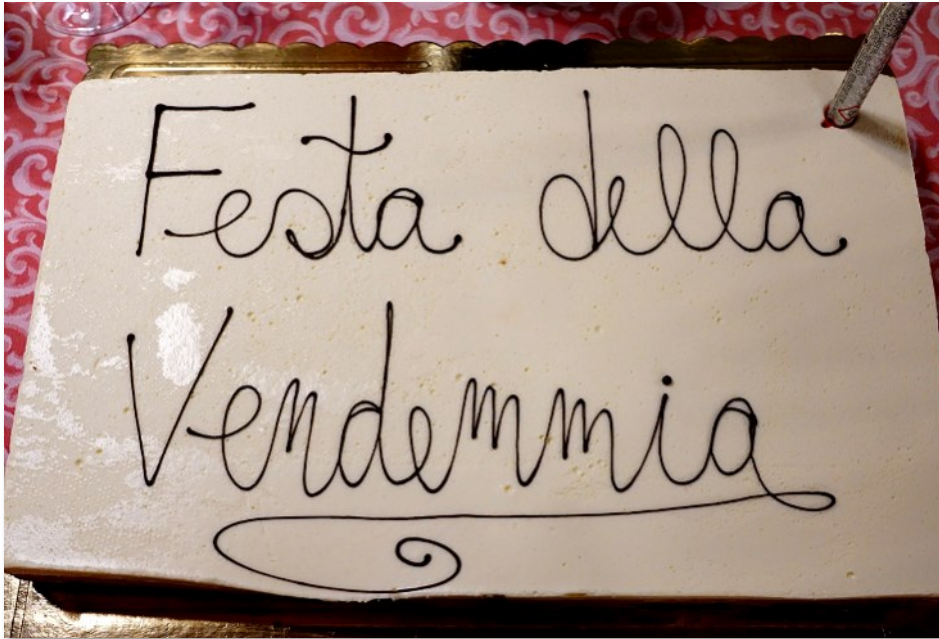 Festa della
Vendemmia